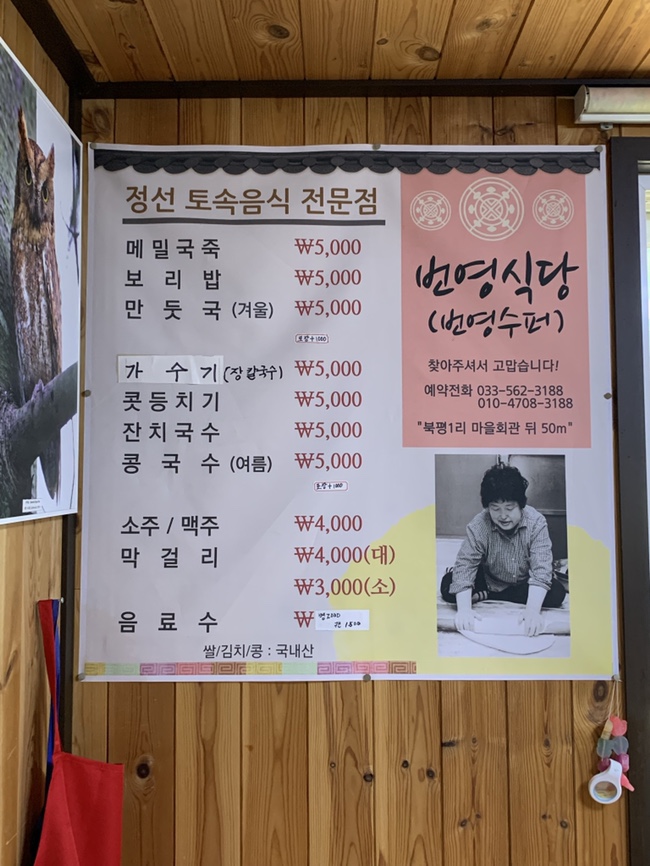 정선 토속음식 전문점
메밀국죽 ₩5,000
보리밥 ₩5,000
만둣국 (겨울) ₩5,000
+1000
가수기 (장칼국수) ₩5,000
콧등치기 ₩5,000
잔치국수 ₩5,000
콩국수 (여름) ₩5,000
+1000
소주 / 맥주 ₩4,000
막걸리 ₩4,000(대)
₩3,000(소)
음료수 ₩
쌀/김치/콩 : 국내산
번영식당
(번영수퍼)
찾아주셔서 고맙습니다!
예약전화 033-562-3188
010-4708-3188
"북평1리 마을회관 뒤 50m"